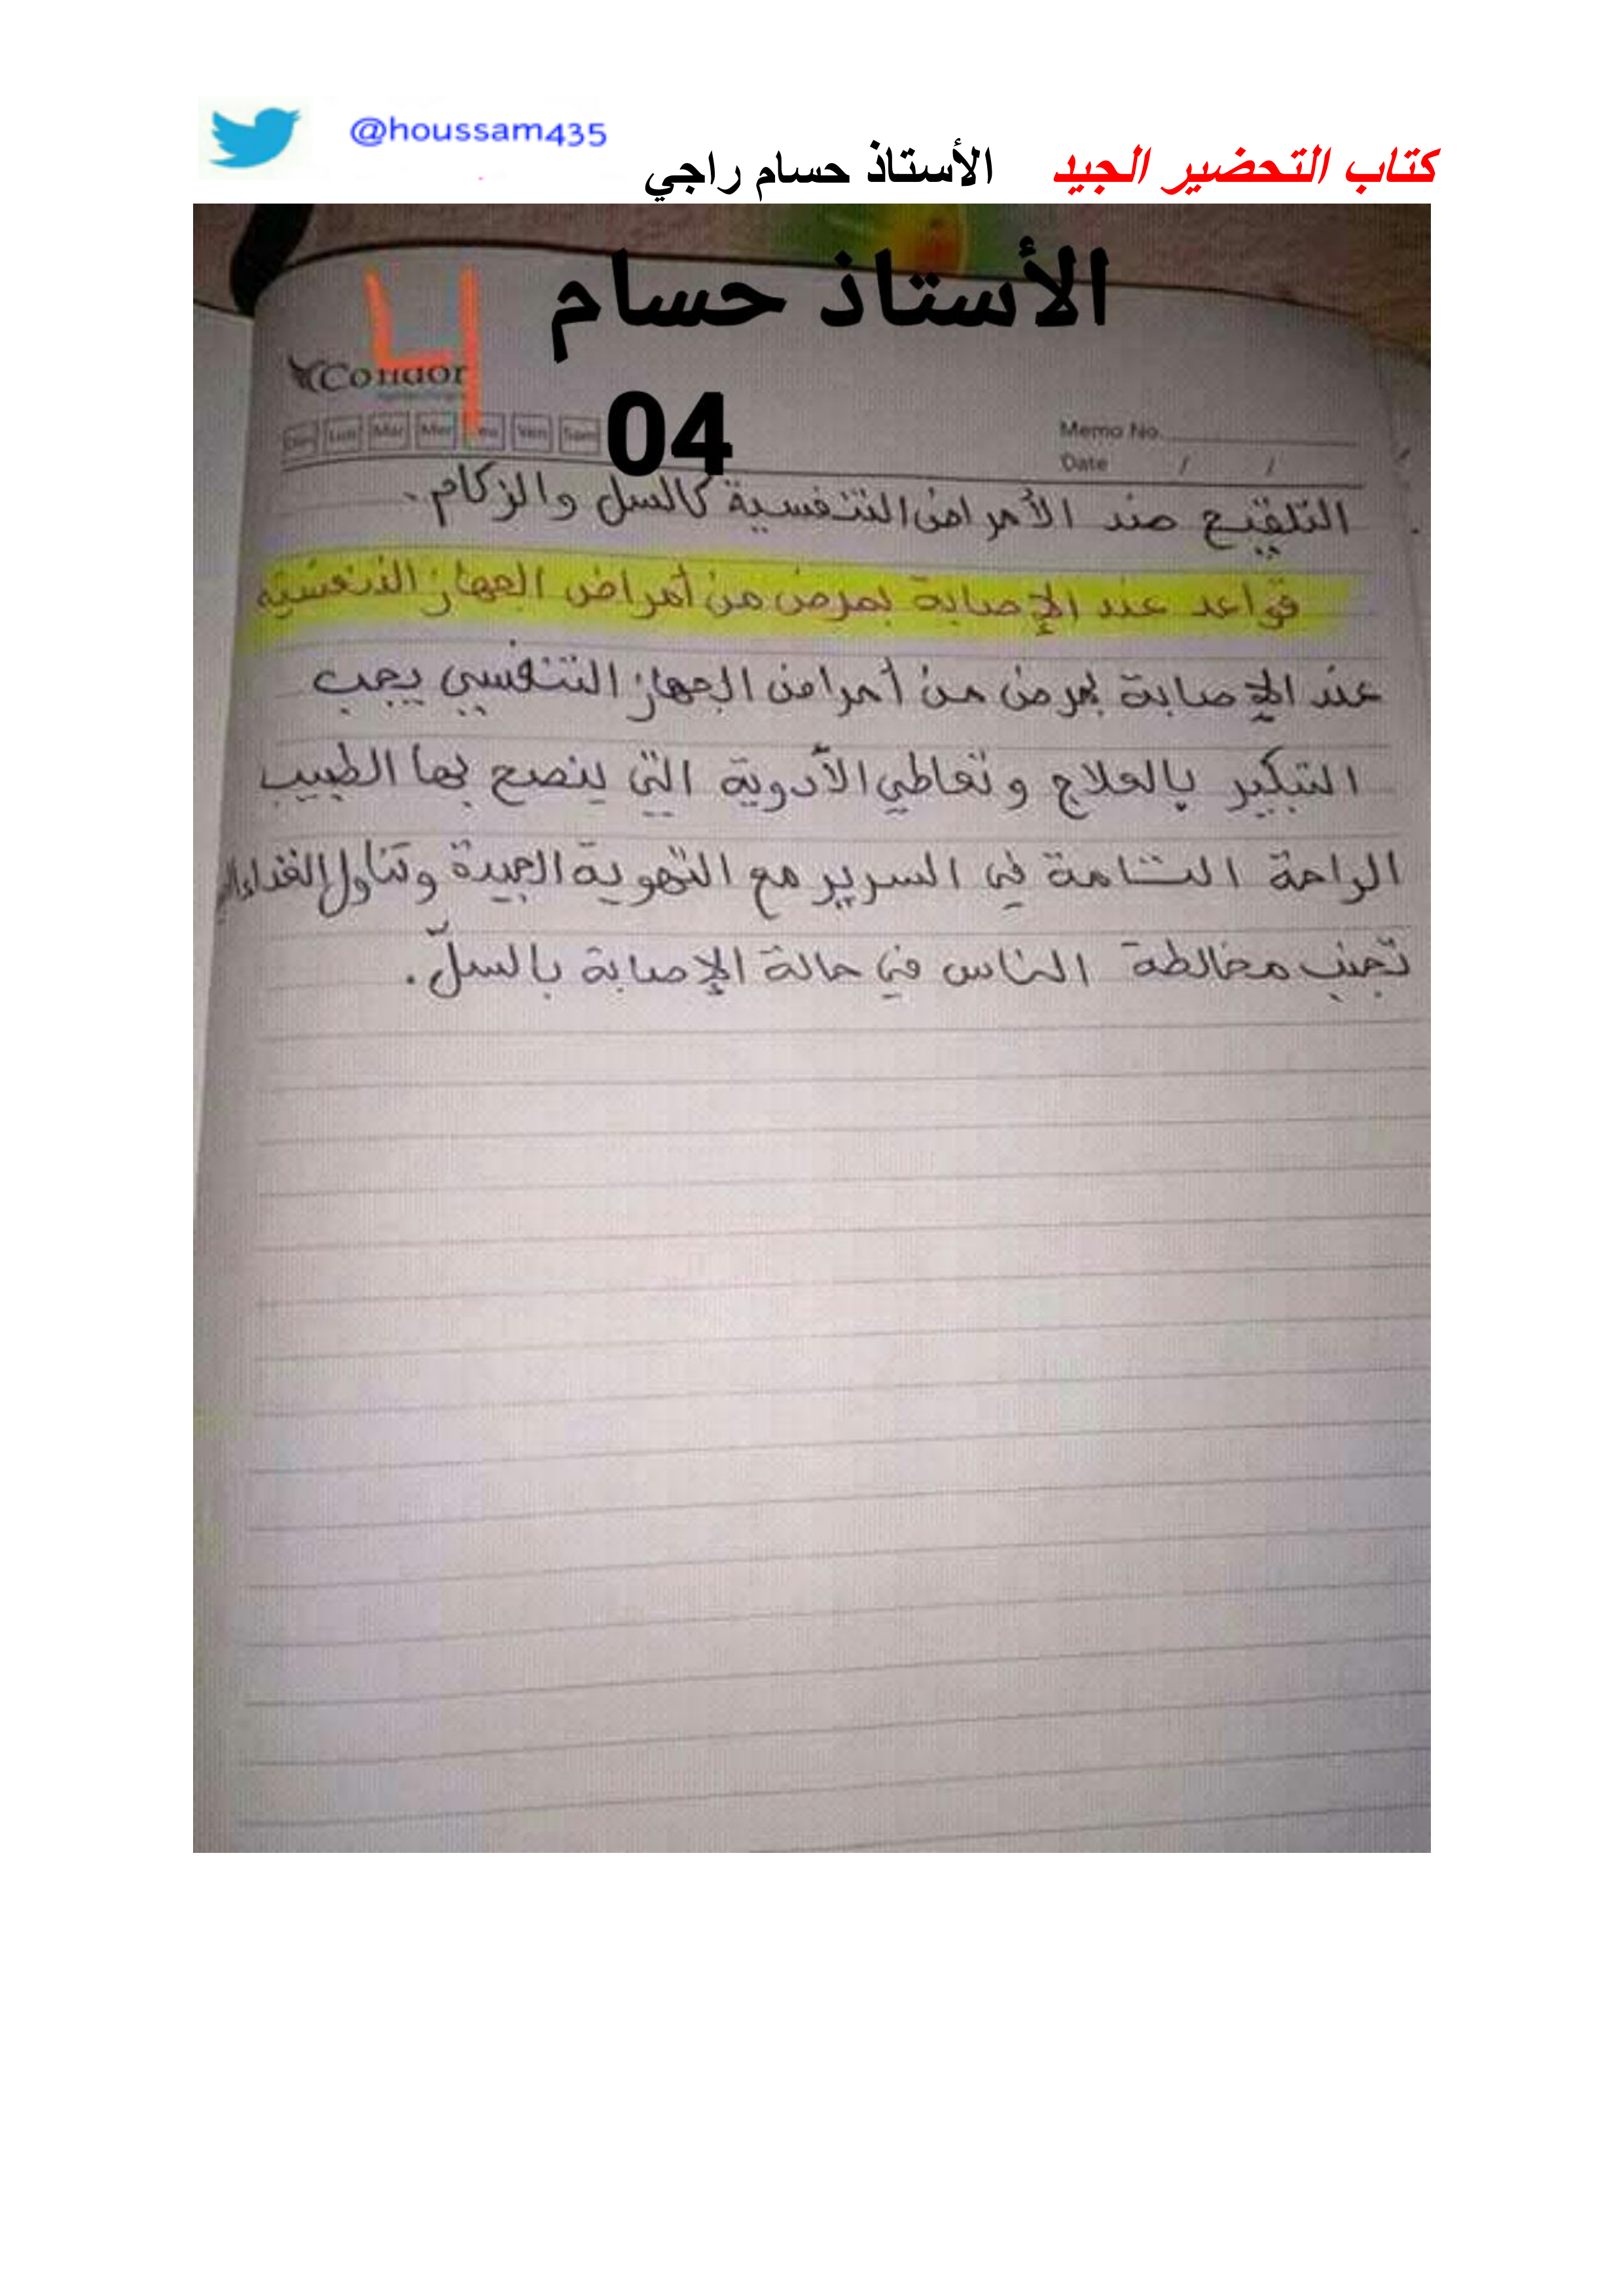 @houssam435
كتاب التحضير الجيد الأستاذ حسام راجي
الأستاذ حسام
4
Condor
04
Dim Lun Mar Mer Jeu Ven Sam
Memo No.
Date / /
التلقيح ضد الأمراض التنفسية كالسل والزكام.
قواعد عند الإصابة بمرض من أمراض الجهاز التنفسية
عند الإصابة بمرض من أمراض الجهاز التنفسي يجب
التبكير بالعلاج وتعاطي الأدوية التي ينصح بها الطبيب
الراحة التامة في السرير مع التهوية الجيدة وتناول الغذاء
تجنب مخالطة الناس في حالة الإصابة بالسلّ.